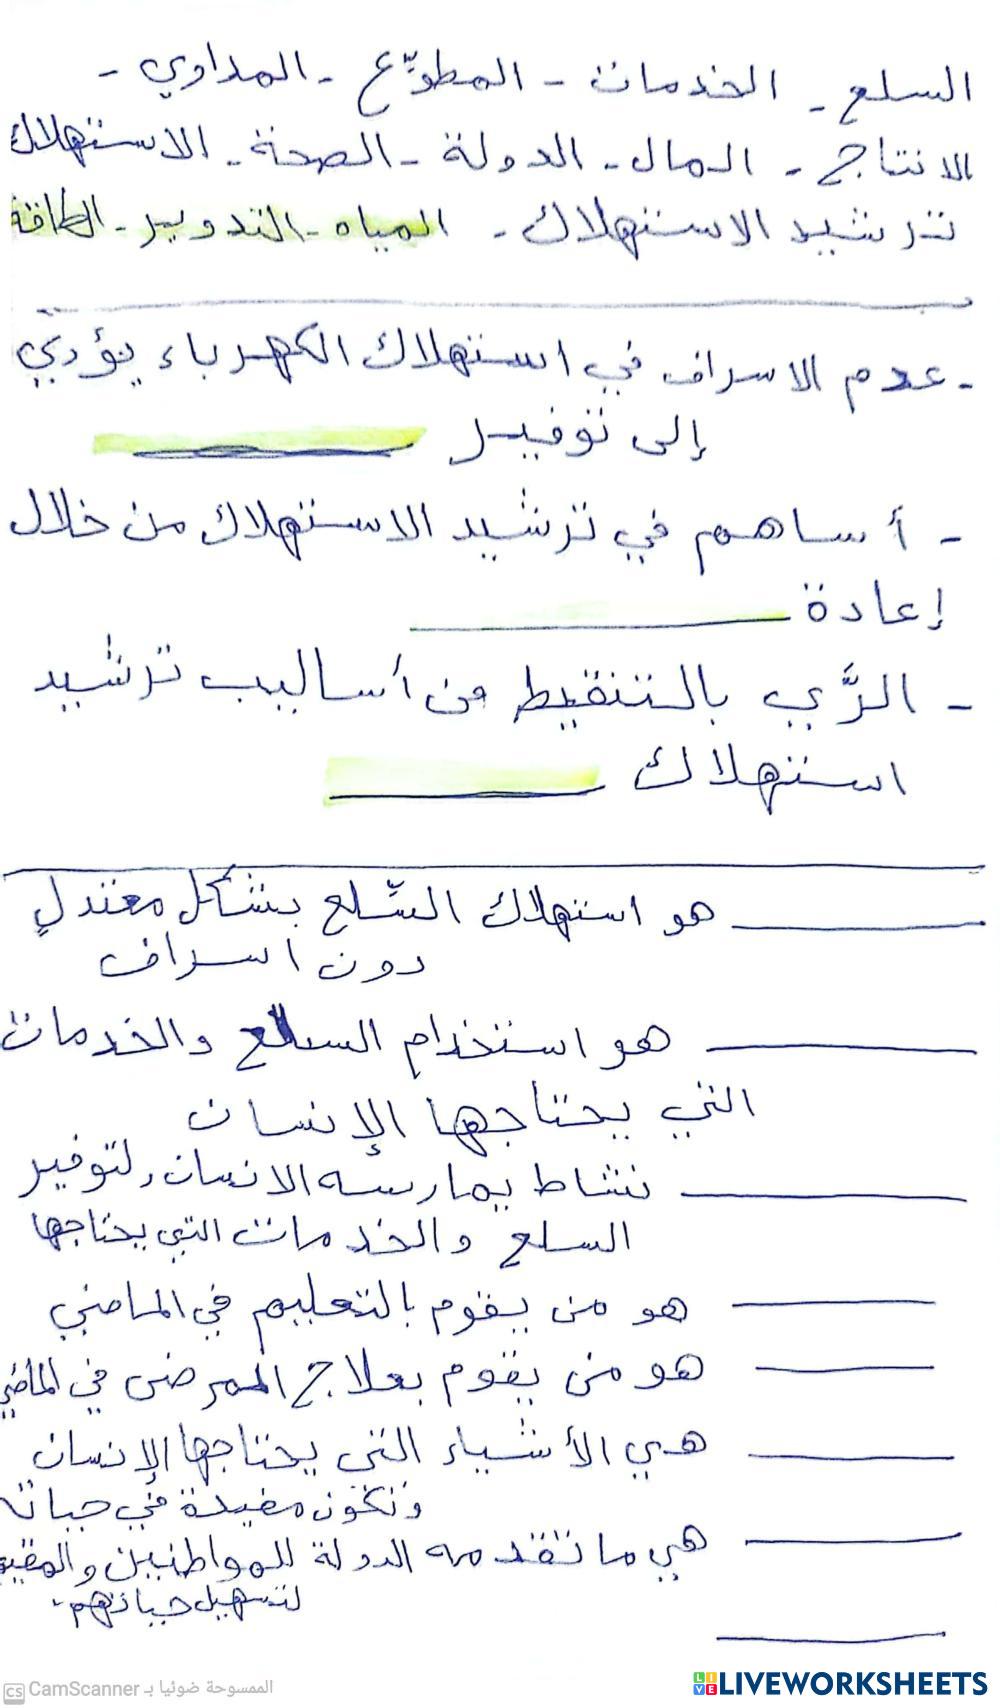 السلع - الخدمات - المطوّع - المداوي -
الانتاج - المال - الدولة - الصحة - الاستهلاك
ترشيد الاستهلاك - المياه - التدوير - الطاقة
- عدم الاسراف في استهلاك الكهرباء يؤدي
إلى توفير
- أساهم في ترشيد الاستهلاك من خلال
إعادة
- الرَّي بالتنقيط من أساليب ترشيد
استهلاك
هو استهلاك السِّلع بشكل معتدلٍ
دون اسراف
هو استخدام السلع والخدمات
التي يحتاجها الإنسان
نشاط يمارسه الانسان لتوفير
السلع والخدمات التي يحتاجها
هو من يقوم بالتعليم في الماضي
هو من يقوم بعلاج المرضى في الماضي
هي الأشياء التي يحتاجها الإنسان
وتكون مفيدة في حياته
هي ما تقدمه الدولة للمواطنين
لتسهيل حياتهم.
الممسوحة ضوئيا بـ CamScanner
LIVEWORKSHEETS